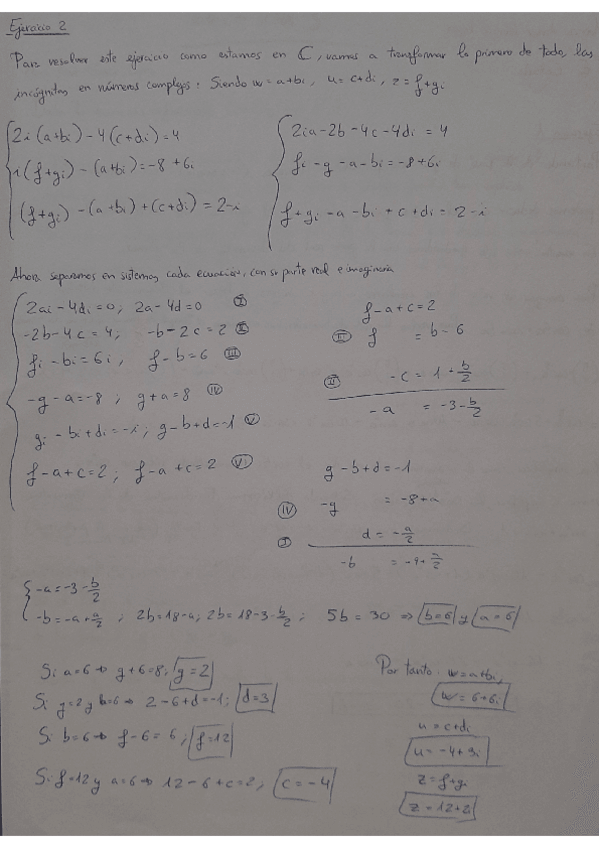 Ejercicio 2
Para resolver este ejercicio como estamos en C, vamos a transformar lo primero de todo, las
incógnitas en números complejos: Siendo w = a+bi, u = c+di, z = f+gi
2i(a+bi) - 4(c+di) = 4
i(f+gi) - (a+bi) = -8 + 6i
(f+gi) - (a+bi) + (c+di) = 2-i
2ia - 2b - 4c - 4di = 4
fi - g - a - bi = -8 + 6i
f + gi - a - bi + c + di = 2 - i
Ahora separamos en sistemas cada ecuación, con su parte real e imaginaria
2ai - 4di = 0; 2a - 4d = 0 I
-2b - 4c = 4; -b - 2c = 2 II
fi - bi = 6i, f - b = 6 III
-g - a = -8; g + a = 8 IV
gi - bi + di = -i; g - b + d = -1 V
f - a + c = 2; f - a + c = 2 VI
f - a + c = 2
f = b - 6
II -c = 1 + b/2
-a = -3 - b/2
g - b + d = -1
IV -g = -8 + a
I d = -a/2
-b = -9 + a/2
-a = -3 - b/2
-b = -a + a/2; 2b = 18 - a; 2b = 18 - 3 - b/2; 5b = 30 ⇒ b = 6 y a = 6
Si a = 6 ⇒ g + 6 = 8; g = 2
Si g = 2 y b = 6 ⇒ 2 - 6 + d = -1; d = 3
Si b = 6 ⇒ f - 6 = 6; f = 12
Si f = 12 y a = 6 ⇒ 12 - 6 + c = 2; c = -4
Por tanto: w = a + bi,
w = 6 + 6i
u = c + di
u = -4 + 3i
z = f + gi
z = 12 + 2i